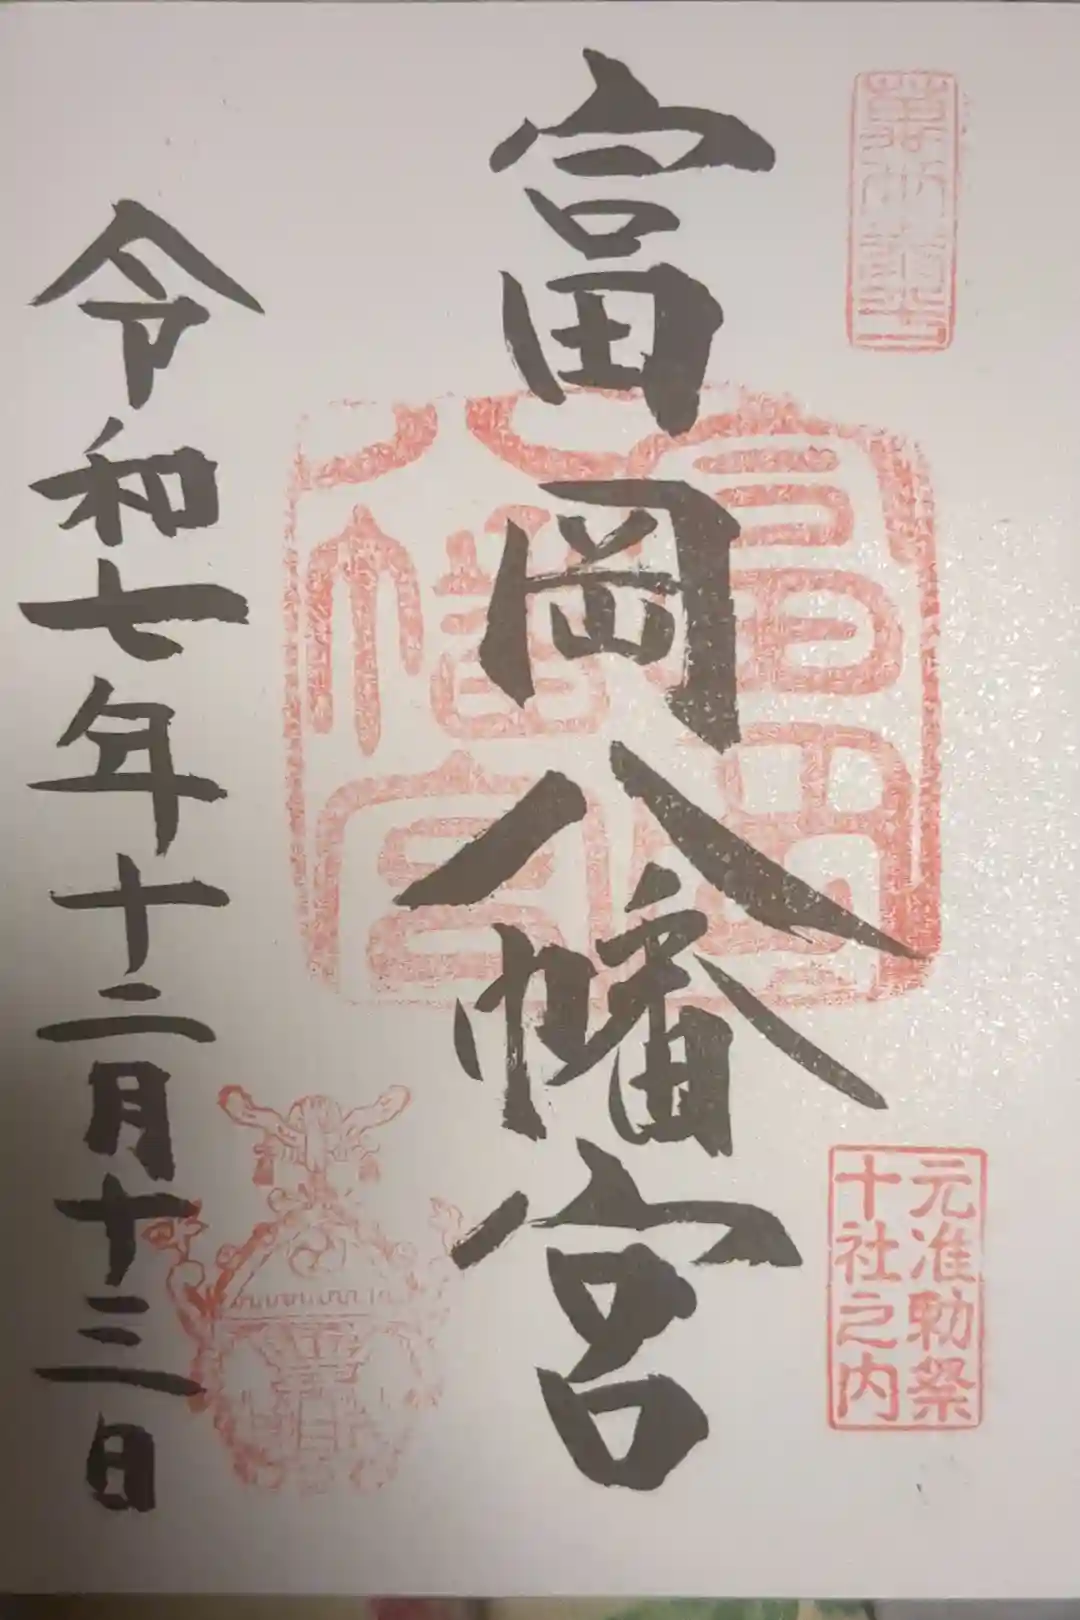 富岡八幡宮
元准勅祭
十社之内
富岡八幡宮
令和七年十二月十三日